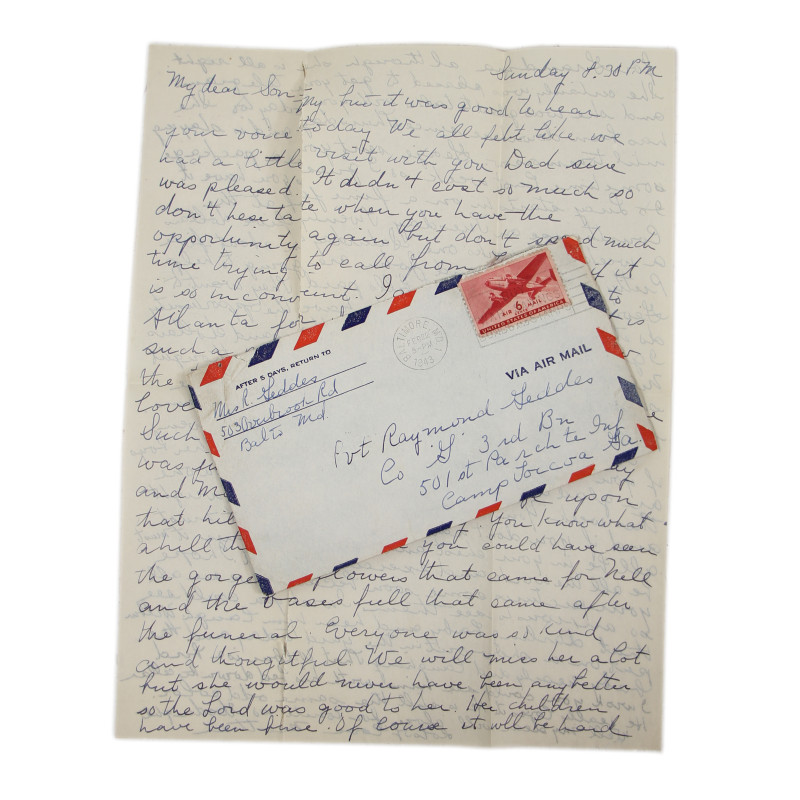 Sunday 8.30 P.M
My dear Son-
My but it was good to hear
your voice today We all felt like we
had a little visit with you Dad sure
was pleased. It didn't cost so much so
don't hesitate when you have the
opportunity again but don't spend much
time trying to call from if it
is so inconvient. I
Atlanta for to
such a is
the
love
Such
was
and M
that hil be upon
a hill th You know what
you could have seen
the gorge flowers that came for Nell
and the vases full that came after
the funeral. Everyone was so kind
and thoughtful We will miss her a lot
but she would never have been any better
so the Lord was good to her. Her children
have been fine. Of couse it will be hard
AFTER 5 DAYS, RETURN TO
Mrs R. Geddes
Rd
Balto Md.
BALTIMORE, MD.
FEB
PM
1943
AIR 6¢ MAIL
UNITED STATES OF AMERICA
VIA AIR MAIL
Pvt Raymond Geddes
Co G. 3rd Bn
501st Parchte Inf
Camp Toccoa Ga.